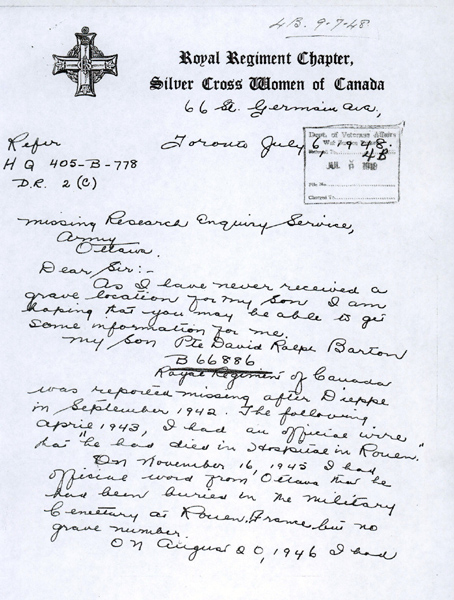 4B. 9-7-48
Royal Regiment Chapter,
Silver Cross Women of Canada
66 St. Germain Ave,
Toronto July 6, 1948.
Refer
H Q 405-B-778
D.R. 2 (C)
Dept. of Veterans Affairs
4B
File No.
Charged To
Missing Research Enquiry Service,
Army
Ottawa.
Dear Sir:-
As I have never received a
grave location for my son I am
hoping that you may be able to get
some information for me.
My son Pte David Ralph Barton
B66886
Royal Regiment of Canada
was reported missing after Dieppe
in September 1942. The following
April 1943, I had an official wire
that "he had died in Hospital in Rouen."
On November 16, 1945 I had
official word from Ottawa that he
had been buried in the military
Cemettary at Rouen, France but no
grave number.
On August 20, 1946 I had